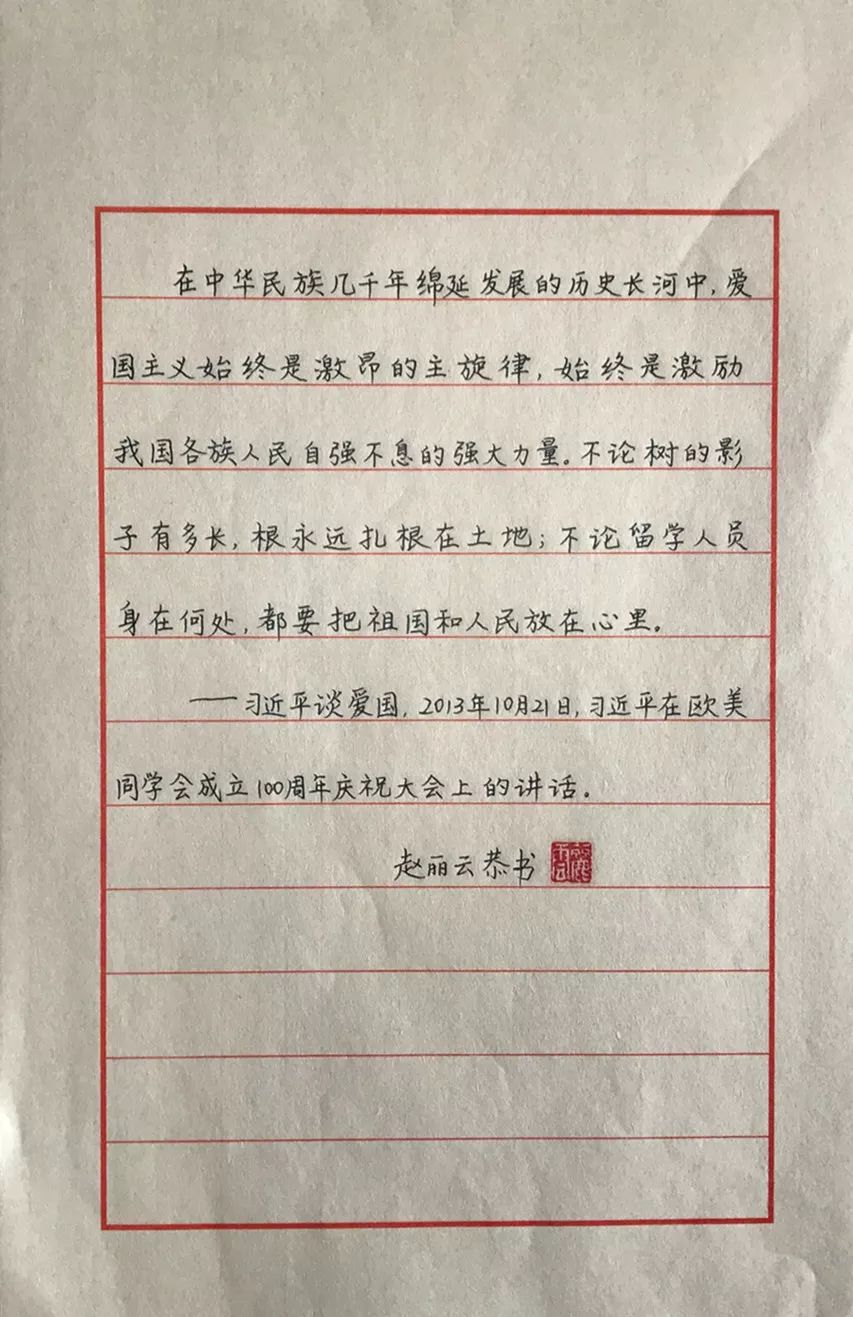 在中华民族几千年绵延发展的历史长河中,爱
国主义始终是激昂的主旋律,始终是激励
我国各族人民自强不息的强大力量。不论树的影
子有多长,根永远扎根在土地;不论留学人员
身在何处,都要把祖国和人民放在心里。
——习近平谈爱国,2013年10月21日,习近平在欧美
同学会成立100周年庆祝大会上的讲话。
赵丽云恭书